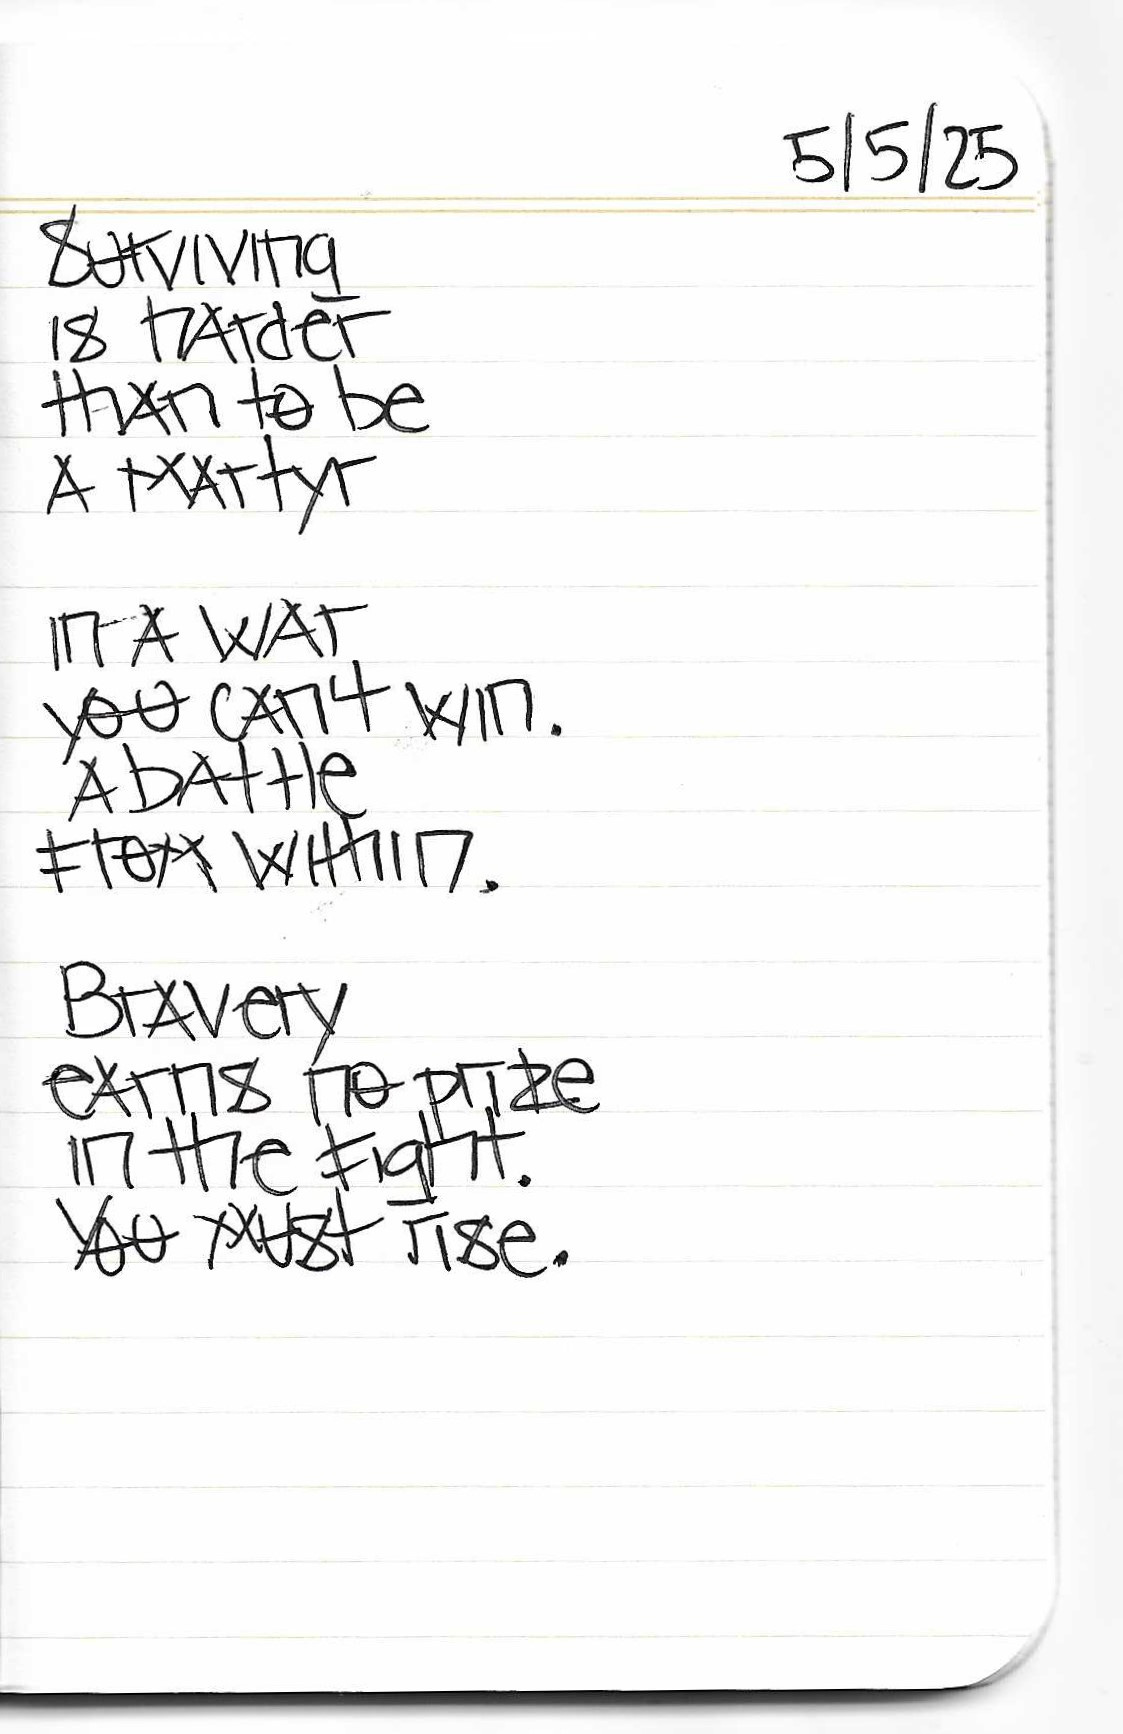 5/5/25
Surviving
is harder
than to be
A martyr
in A WAr
you can't win.
A bAttle
from within.
Bravery
earns no prize
in the fight.
You must rise.